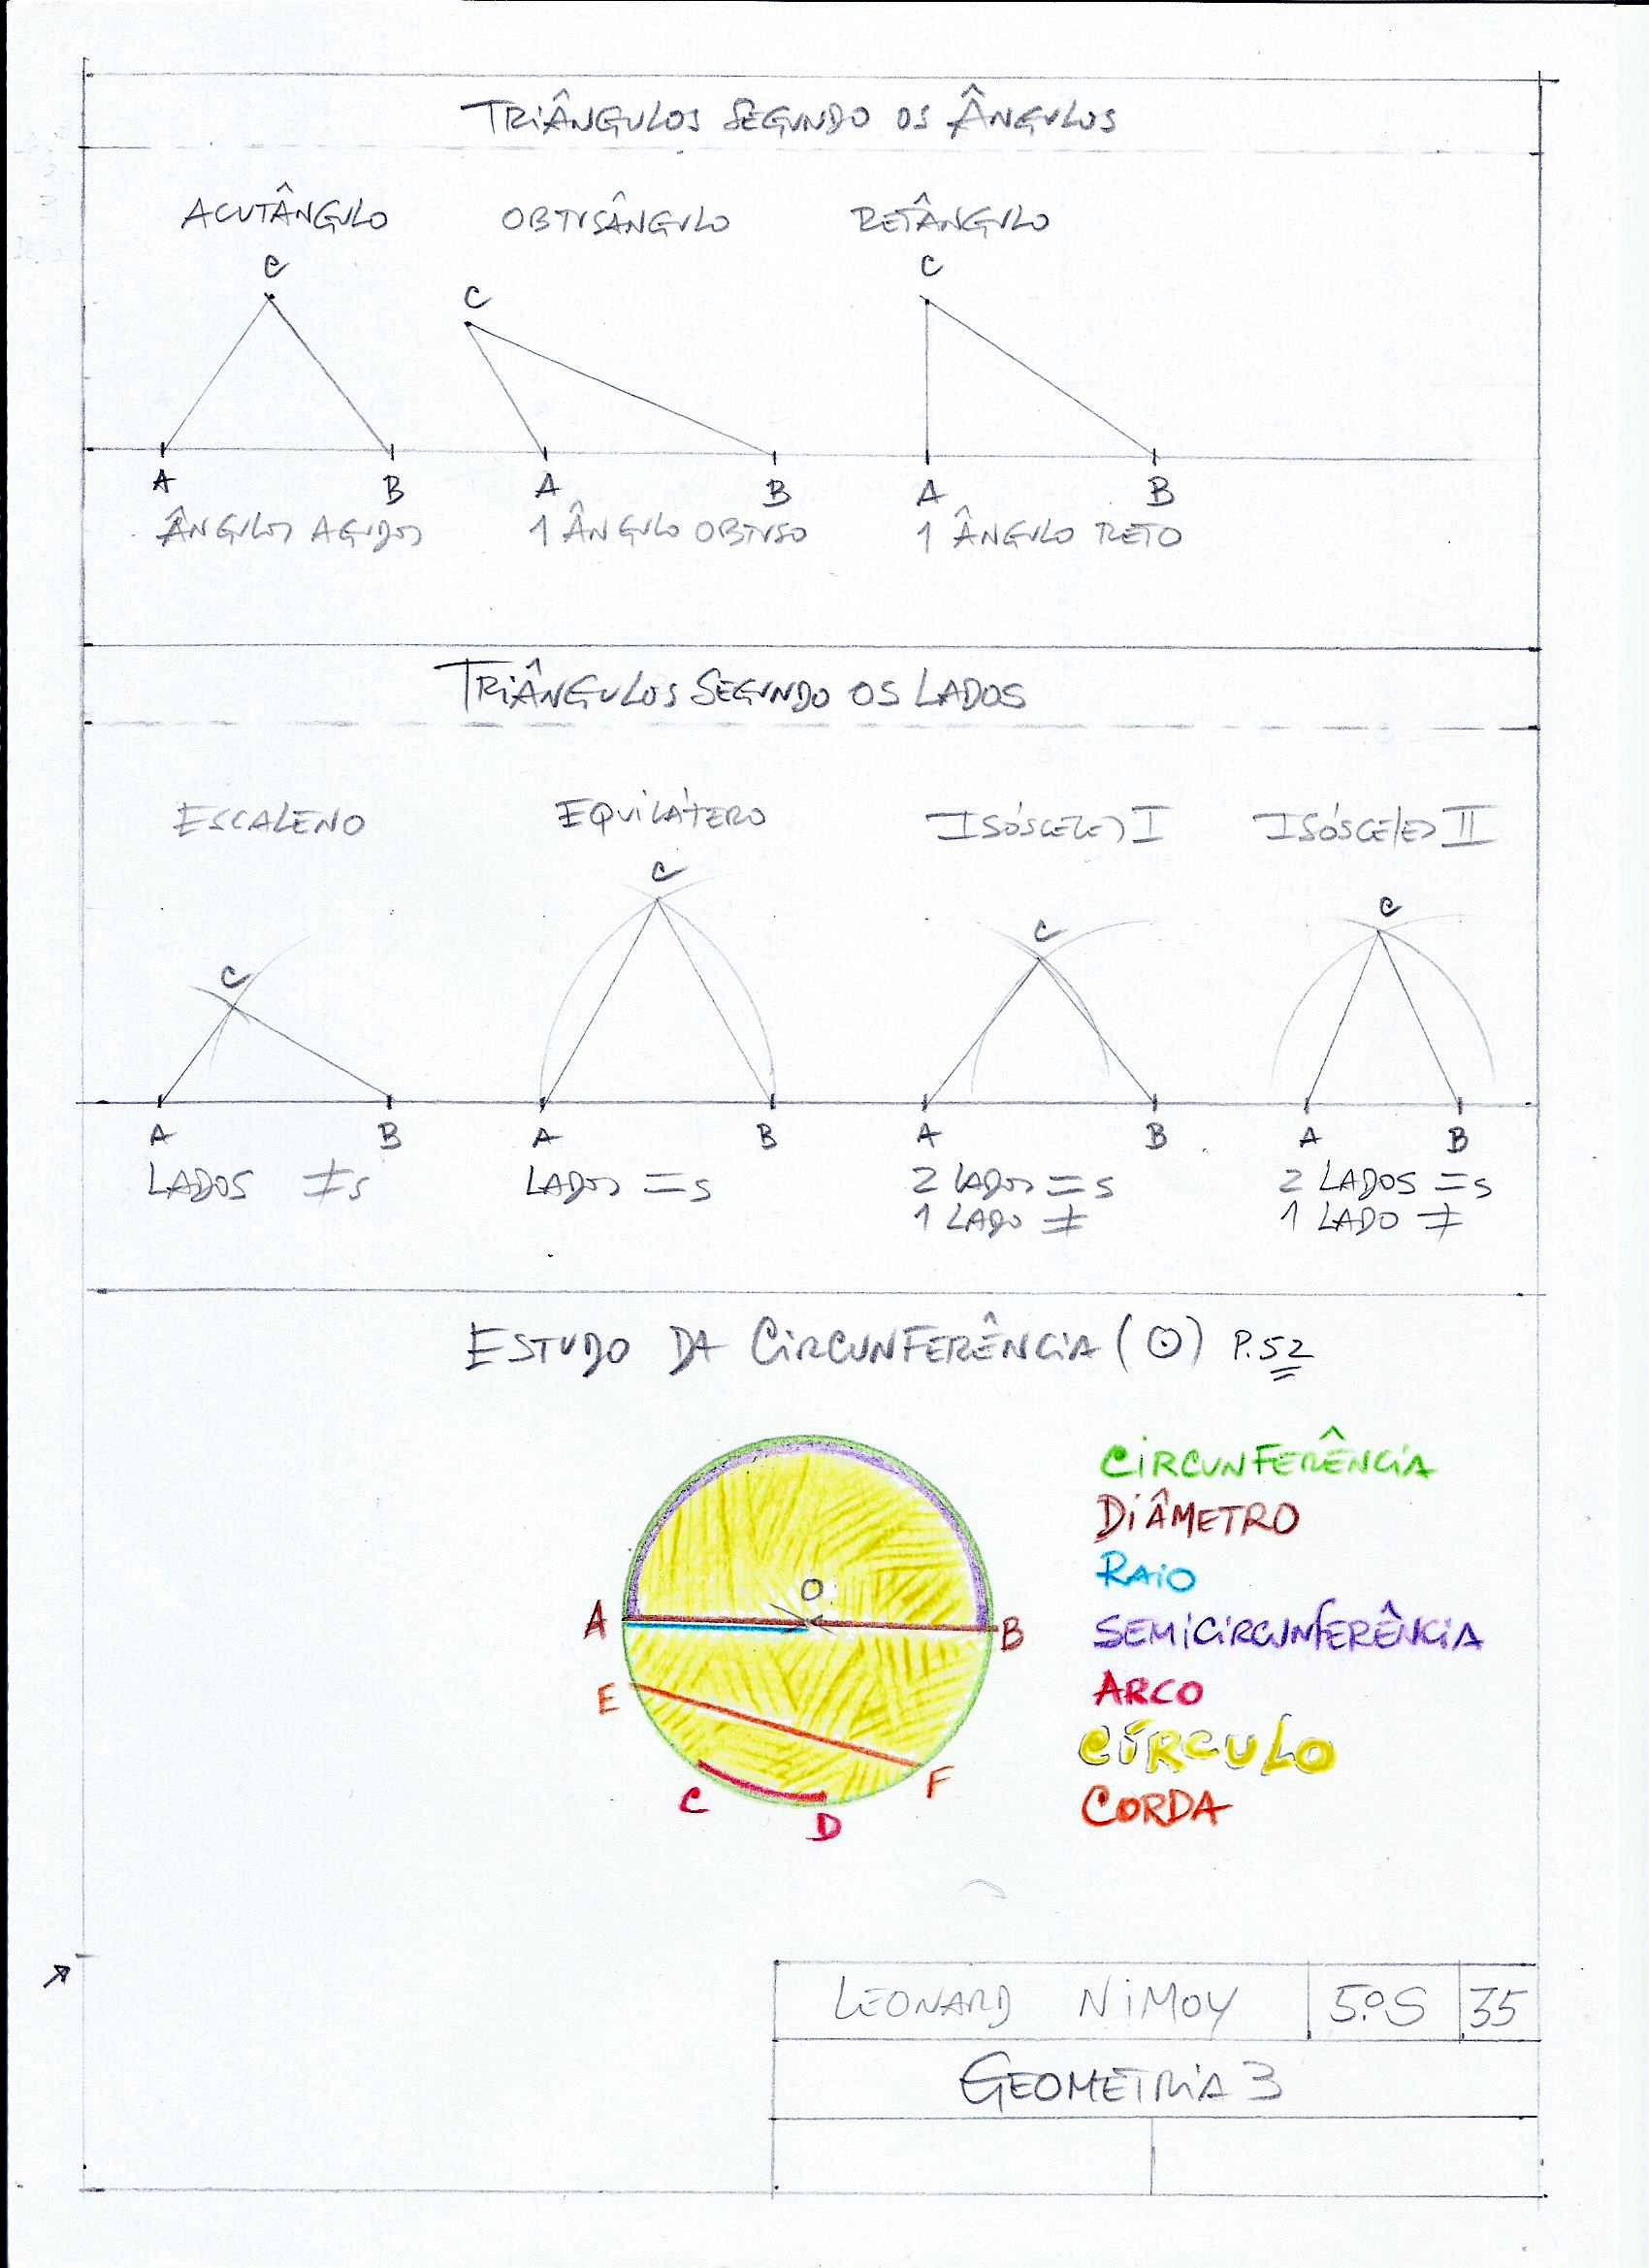 TRIÂNGULOS SEGUNDO OS ÂNGULOS
ACUTÂNGULO OBTUSÂNGULO RETÂNGULO
C C C
A B A B A B
ÂNGULOS AGUDOS 1 ÂNGULO OBTUSO 1 ÂNGULO RETO
TRIÂNGULOS SEGUNDO OS LADOS
ESCALENO EQUILÁTERO ISÓSCELES I ISÓSCELES II
C C C C
A B A B A B A B
LADOS ≠s LADOS =s 2 LADOS =s 2 LADOS =s
1 LADO ≠ 1 LADO ≠
ESTUDO DA CIRCUNFERÊNCIA (⊙) P.52
O
A B
E
F
C
D
CIRCUNFERÊNCIA
DIÂMETRO
RAIO
SEMICIRCUNFERÊNCIA
ARCO
CÍRCULO
CORDA
LEONARD NIMOY 5.ºS 35
GEOMETRIA 3